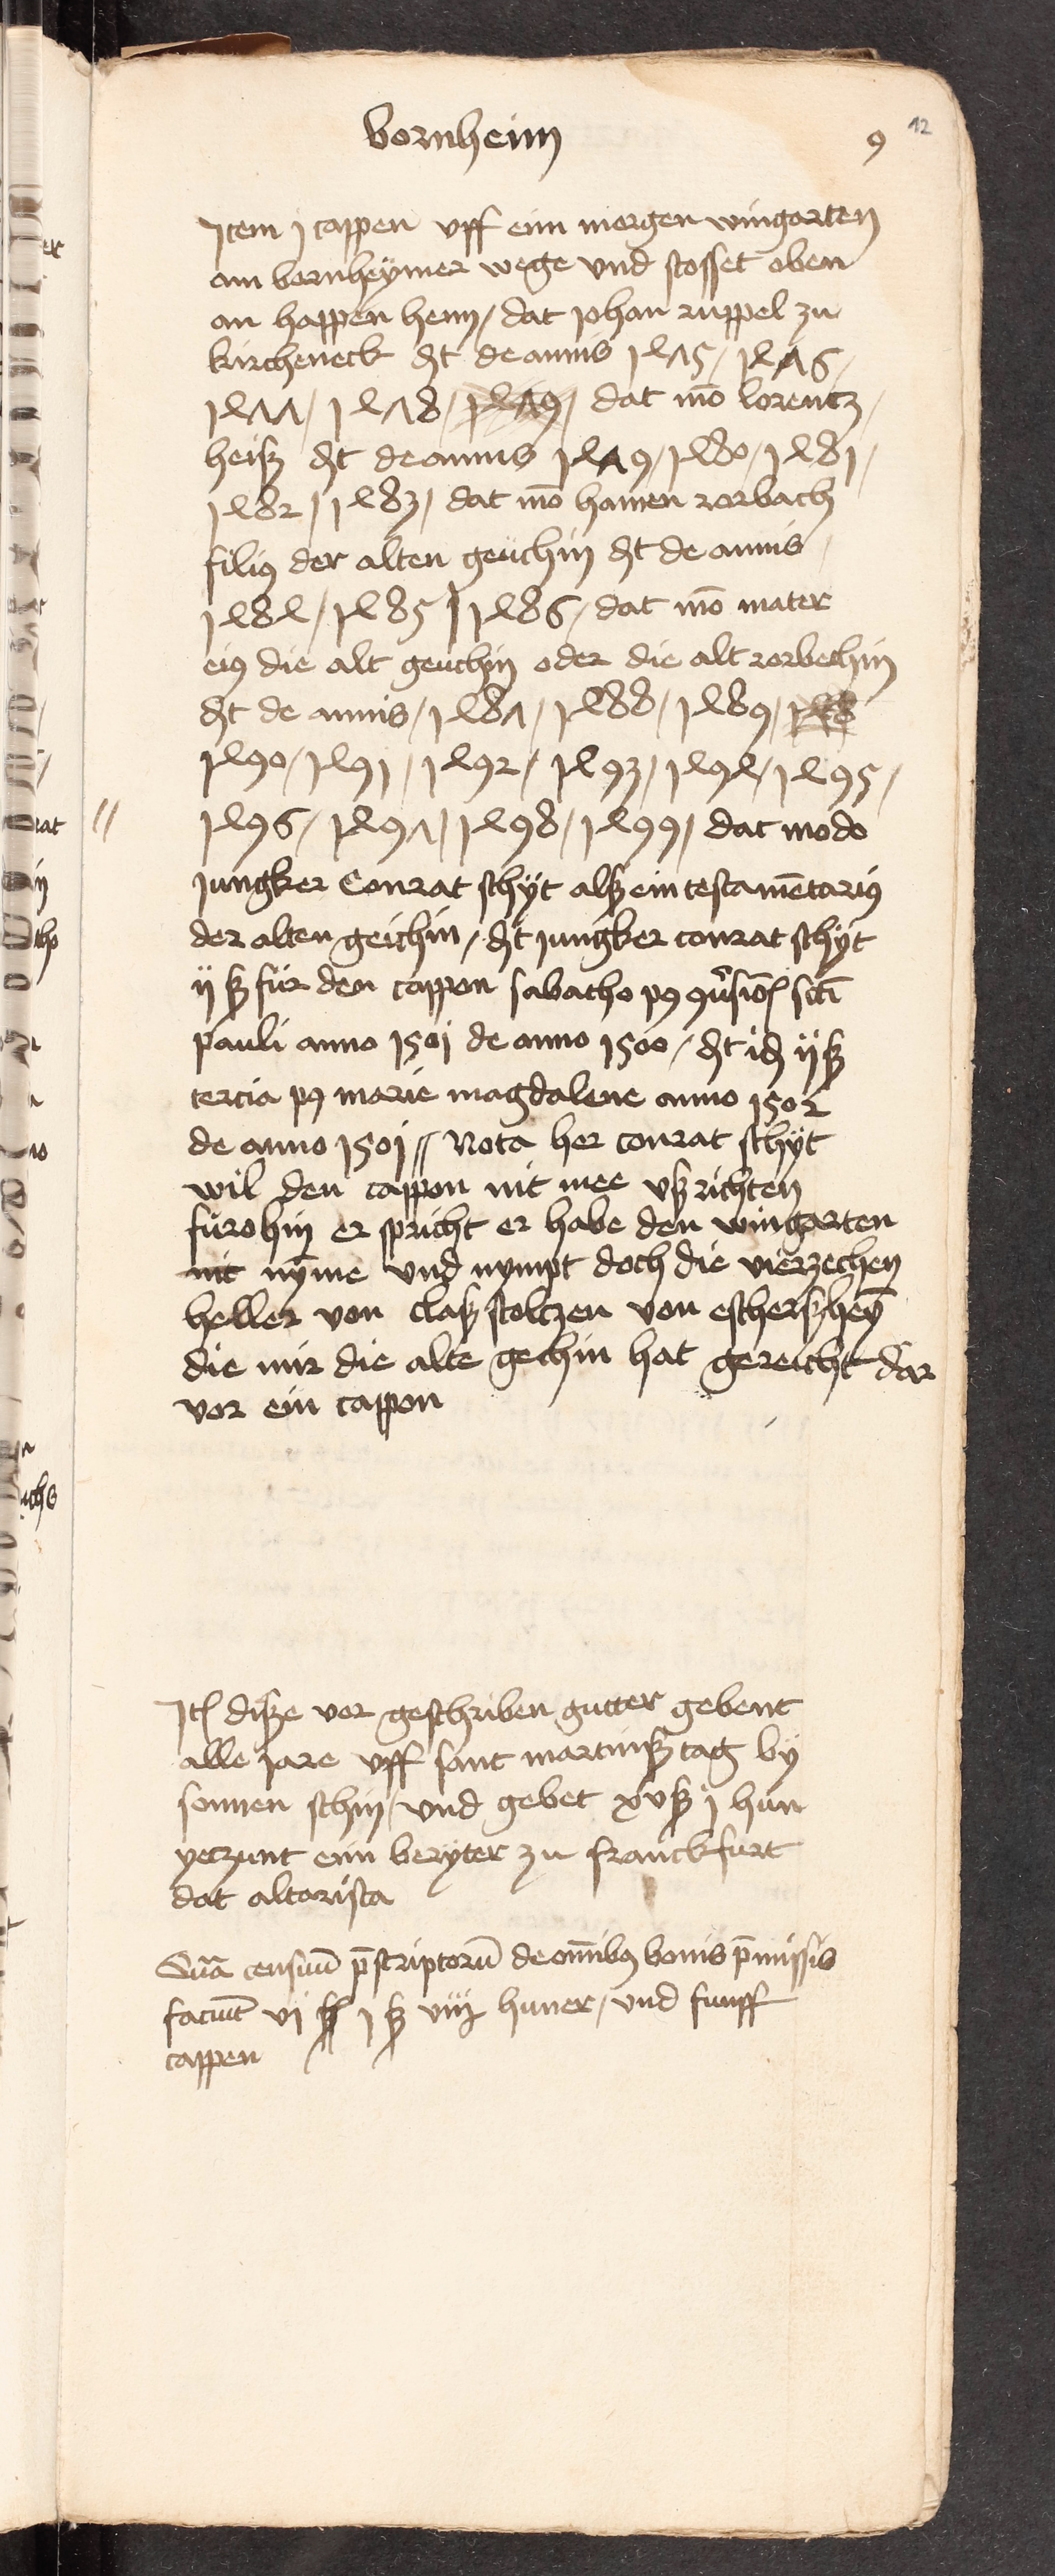 bornheim
9 12
Item j cappen vff ein morgen wingarten
am bornheymer wege vnd stosset oben
an happen henn / dat johan ruppel zu
kircheneck dt de annis 1475 / 1476 /
1477 / 1478 / 1479 / dat mo lorentz
heisz dt de annis 1479 / 1480 / 1481 /
1482 / 1483 / dat mo hamen rorbach
filiꝯ der alten geuchin dt de annis
1484 / 1485 / 1486 / dat mo mater
eiꝯ die alt geuchin oder die alt rorbechin
dt de annis / 1487 / 1488 / 1489 /
1490 / 1491 / 1492 / 1493 / 1494 / 1495 /
// 1496 / 1497 / 1498 / 1499 / dat modo
Jungker Conrat schÿt alsz ein testamētariꝯ
der alten geichin / dt jungker conrat schÿt
ij ß für den cappon sabatho pꝯ ꝯũsiōꝭ scti
pauli anno 1501 de anno 1500 / dt id ij ß
tercia pꝯ marie magdalene anno 1502
de anno 1501 // Nota her conrat schÿt
wil den cappon nit mee vsz richten
fürohin er spricht er habe den wingarten
nit nÿme vnd nympt doch die vierzechen
heller von clasz stoltzen von escherszheȳ
die mir die alte gechin hat gereicht dar
vor ein cappon
Itꝭ disze vor geschriben gutter gebent
alle jare vff sant martinsz tag bÿ
sonnen schin / vnd gebet xv ß j hůn
yetzunt ein berÿter zu franckfurt
dat altarista
Suma censuū p̄scriptorū de om̄ibꝯ bonis p̄missis
faciūt vj j ß viij huner / vnd funff
cappen